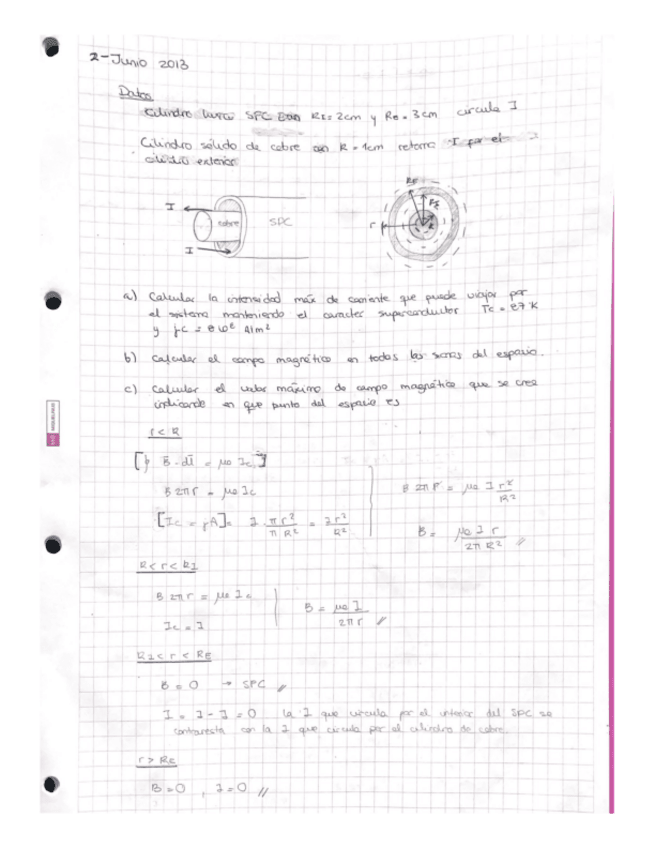 2-Junio 2013
Datos
Cilindro hueco SPC con RI=2cm y Re=3cm circula I
Cilindro sólido de cobre con R=1cm retorna I por el
cilindro exterior
I
cobre
SPC
I
RE
RI
R
r
a) Calcular la intensidad máx de corriente que puede viajar por
el sistema manteniendo el caracter superconductor Tc = 87 K
y jc = 8 10⁶ A/m²
b) Calcular el campo magnético en todas las zonas del espacio.
c) Calcular el valor máximo de campo magnético que se crea
indicando en que punto del espacio es
r < R
[∮ B̄ · dl̄ = μo Ic]
B 2π r = μo Ic
[Ic = jA] = I · π r² / π R² = I r² / R²
B 2π r = μo I r² / R²
B = μo I r / 2π R² //
R < r < RI
B 2π r = μo Ic
Ic = I
B = μo I / 2π r //
RI < r < RE
B = 0 → SPC //
I = I - I = 0 La I que circula por el interior del SPC se
contrarresta con la I que circula por el cilindro de cobre.
r > RE
B = 0 , I = 0 //